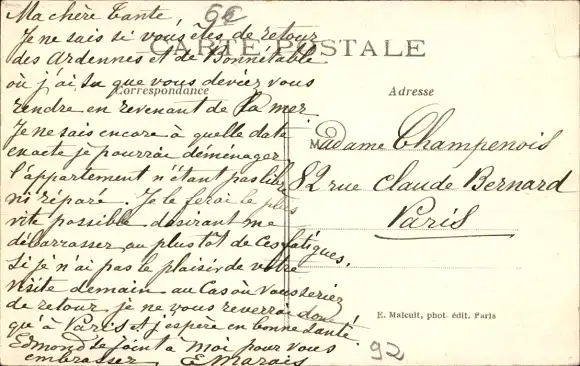 Ma chère Tante,
Je ne sais si vous êtes de retour
des Ardennes et de Bonnétable
où j'ai su que vous deviez vous
rendre en revenant de la mer.
Je ne sais encore à quelle date
exacte je pourrai déménager
l'appartement n'étant pas libre
ni réparé. Je le ferai le plus
vite possible désirant me
débarrasser au plus tôt de ces fatigues.
Si je n'ai pas le plaisir de votre
visite demain au cas où vous seriez
de retour je ne vous reverrai donc
qu'à Paris et j'espère en bonne santé.
Edmond se joint à moi pour vous
embrasser E Marais
CARTE POSTALE
Correspondance
Adresse
Madame Champenois
82 rue Claude Bernard
Paris
E. Malcuit, phot. édit. Paris
92